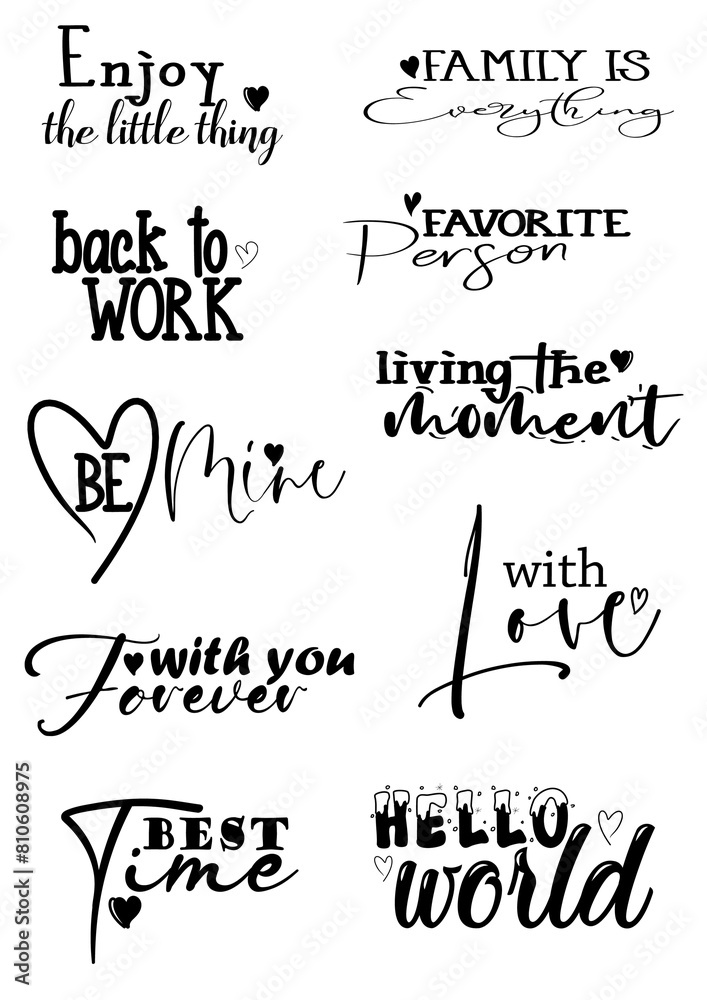 Enjoy
the little thing
FAMILY IS
Everything
back to
WORK
FAVORITE
Person
living the
moment
BE Mine
with
Love
with you
Forever
BEST
Time
HELLO
world
Adobe Stock | #810608975